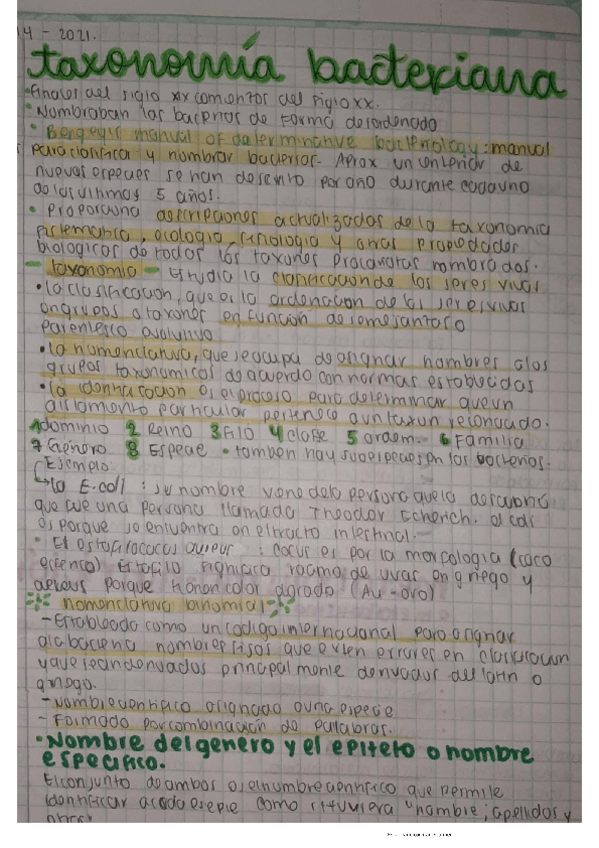 14 - 2021.
taxonomía bacteriana
Finales del siglo xix comienzos del siglo xx.
Nombraban las bacterias de forma desordenada
Bergey's manual of determinative bacteriology: manual
para clasificar y nombrar bacterias. Aprox un centenar de
nuevas especies se han descrito por año durante cada uno
de los ultimos 5 años.
• Proporciona descripciones actualizadas de la taxonomia
sistematica, ecologia, fisiologia y otras propiedades
biologicas de todos los taxones procariotas nombrados.
- taxonomia - Estudia la clasificacion de los seres vivos
• la clasificacion, que es la ordenacion de los seres vivos
en grupos o taxones en funcion de semejanza o
parentesco evolutivo
• la nomenclatura, que se ocupa de asignar nombres a los
grupos taxonomicos de acuerdo con normas establecidas
• la identificacion es el proceso para determinar que un
aislamiento particular pertenece a un taxon reconocido.
1 dominio 2 Reino 3 Filo 4 clase 5 orden 6 Familia
7 Género 8 Especie • tambien hay subespecies en las bacterias.
Ejemplo
la E.coli : su nombre viene de la persona que la descubrio
que fue una persona llamada Theodor Echerich. el coli
es porque se encuentra en el tracto intestinal.
El estafilococos aureus : cocus es por la morfologia (coco
esferico) Estafilo significa racimo de uvas en griego y
aereus porque tienen color dorado (Au - oro)
nomenclatura binomial
- Establecido como un codigo internacional para asignar
a la bacteria nombres fijos que eviten errores en clasificacion
y que sean derivados principalmente derivados del latin o
griego.
- Nombre cientifico asignado a una especie
- Formado por combinación de palabras.
• Nombre del genero y el epiteto o nombre
especifico.
El conjunto de ambos es el nombre cientifico que permite
identificar a cada especie como si tuviera "nombre ; apellidos y